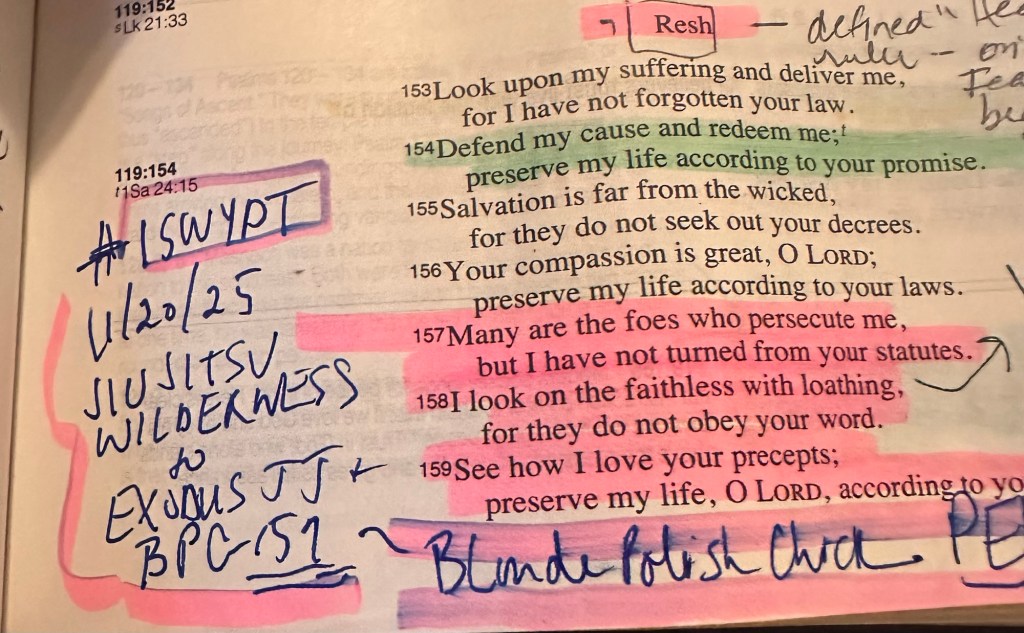 119:152
sLk 21:33
ר Resh — defined "
rule -- on
153Look upon my suffering and deliver me,
for I have not forgotten your law.
154Defend my cause and redeem me;t
preserve my life according to your promise.
155Salvation is far from the wicked,
for they do not seek out your decrees.
156Your compassion is great, O LORD;
preserve my life according to your laws.
157Many are the foes who persecute me,
but I have not turned from your statutes.
158I look on the faithless with loathing,
for they do not obey your word.
159See how I love your precepts;
preserve my life, O LORD, according to yo
119:154
t1Sa 24:15
#LSWYPT
11/20/25
JIU JITSU
WILDERNESS
to
EXODUS JJ ←
BPC-151 ~ Blonde Polish Chick. PE